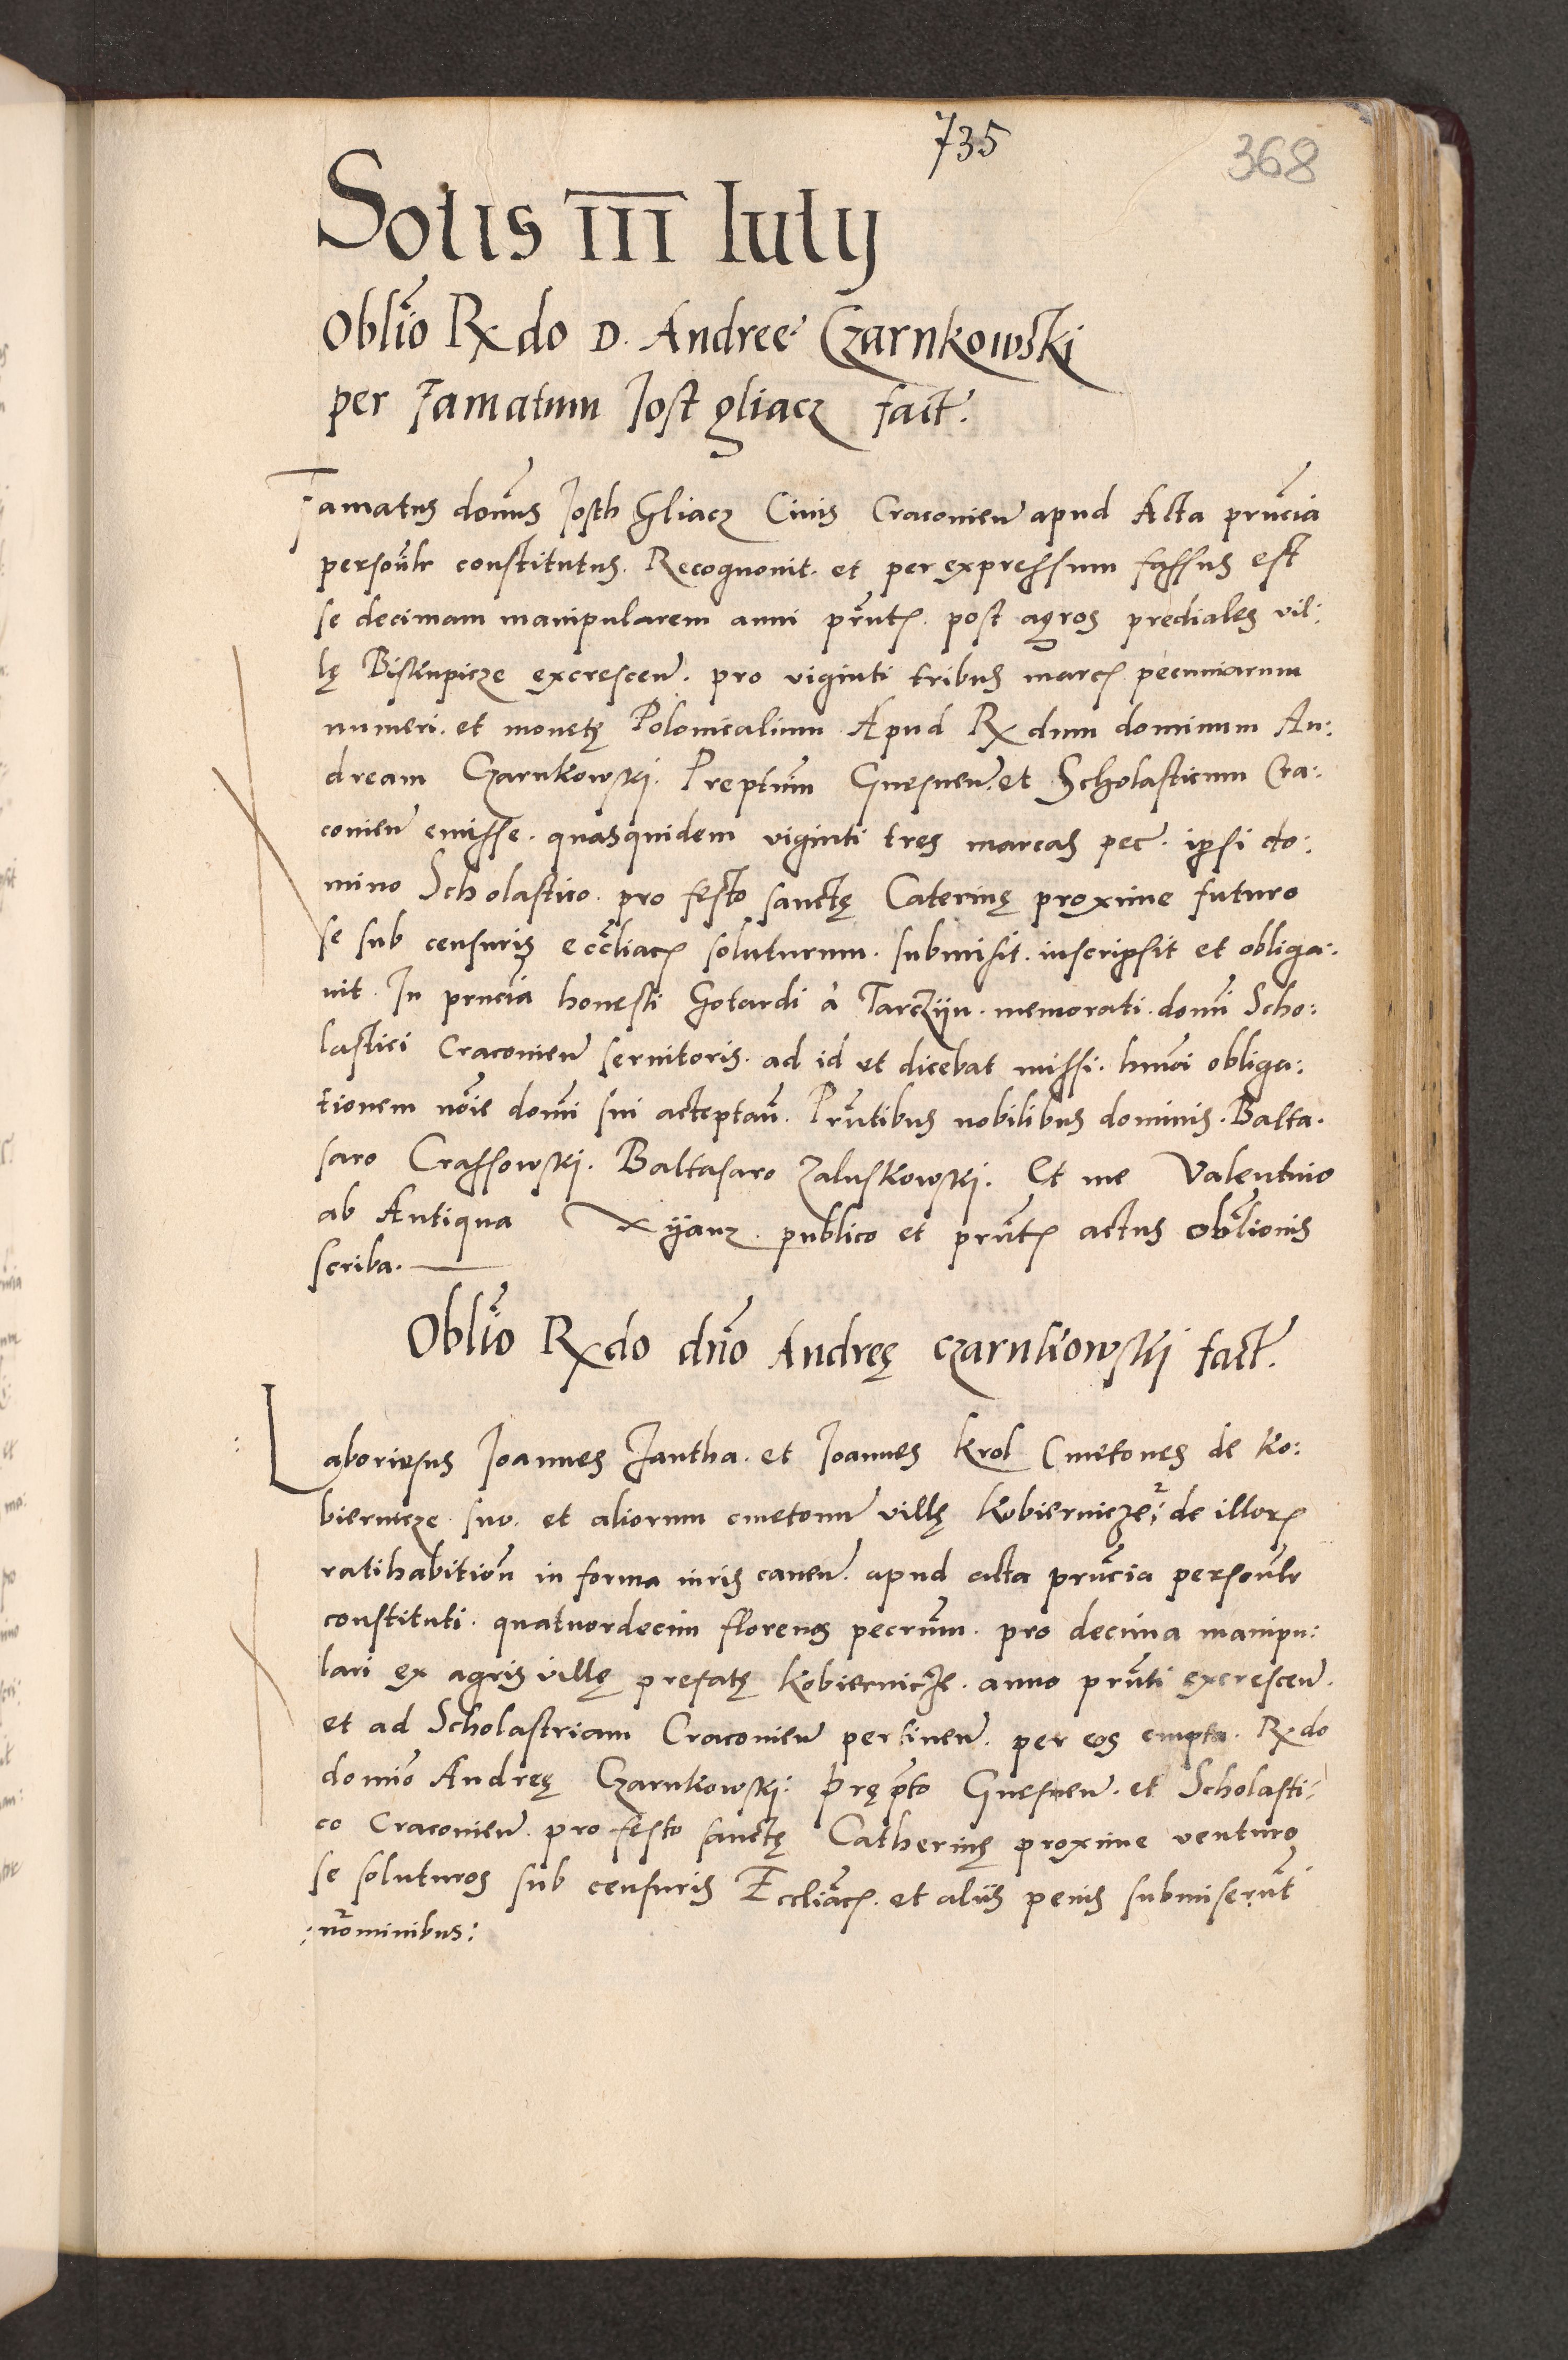 735
368
Solis III Iulij
Obl̃io Rx̃do D. Andreę Czarnkowski
per Famatum Jost gliacz fact̃.
Famatus domñus Josth Gliacz Ciuis Cracovieñ apud Acta prñcia
persoñlr constitutus. Recognouit. et per expressum fassus est
se decimam manipularem anni prñt̃ꝭ. post agros prediales vil:
lę Biskupicze excresceñ. pro viginti tribus marcꝭ pecuniarum
numeri. et monetę Polonicalium Apud Rx̃dum dominum An:
dream Czarnkowski. Preptũm Gnesneñ. et Scholasticum Cra:
conieñ emisse. quasquidem viginti tres marcas pec̃. ipsi do:
mino Scholastico. pro festo sanctę Caterinę proxime futuro
se sub censuris eccl̃iacꝭ soluturum. submisit. inscripsit et obliga:
uit. In prñcia honesti Gotardi à Tarczyn. memorati. domñi Scho:
lastici Cracouieñ seruitoris. ad id et dicebat missi. hmõi obliga:
tionem nõie domñi sui acceptañ. Prñtibus nobilibus dominis. Balta.
saro Crassowski. Baltasaro Zaluskowski. Et me Valentino
ab Antiqua publico et prñtꝭ actus obl̃ionis
scriba.
Obl̃io Rx̃do dño Andreę Czarnkowskj fact̃.
Laboriosus Joannes Jantha. et Joannes Krol Cmetones de Ko:
biernicze suo. et aliorum cmetonũ villę Kobiernicze, de illorꝭ
ratihabitioñ in forma iuris caueñ. apud acta prñcia persoñlr
constituti. quatuordecim florenos pecrũm. pro decima manipu:
lari ex agris villę prefatę Kobiernicze. anno prñti excresceñ.
et ad Scholastriam Cracouieñ pertineñ. per eos empta. Rx̃do
domĩo Andreę Czarnkowski: Prępt̃o Gnesneñ. et Scholasti:
co Cracouieñ. pro festo sanctę Catherinę proxime venturo
se soluturos sub censuris Eccl̃iacꝭ. et alijs penis submiserũt
:nominibus: